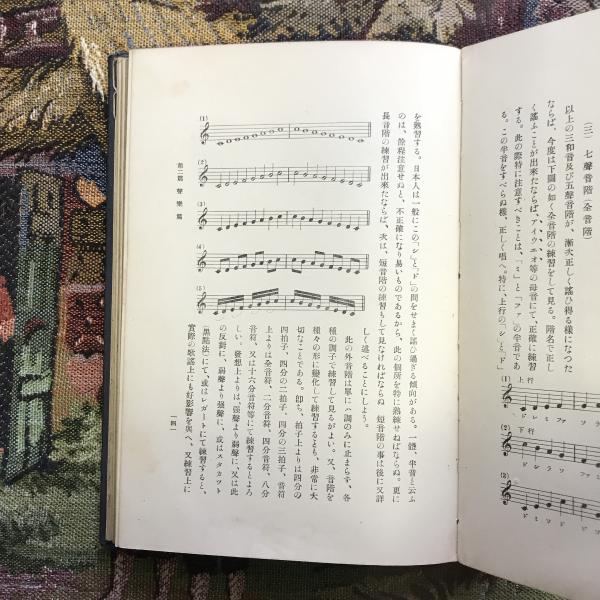 (三 七聲音階(全音階)
以上の三和音及び五聲音階が、漸次正しく謠ひ得る樣になつた
ならば、今度は下圖の如く全音階の練習をして見る。階名で正し
く謠ふことが出來たならば、アイウエオ等の母音にて、正確に練習
する。此の際特に注意すべきことは、「ミ」と「ファ」の半音であ
る。この半音をすべらぬ樣、正しく唱へ。特に、上行の「シ」と「ド」
(1) 上行
ド ミ ソ
(2) 下行
ド シ ラ ソ
(2)
ド ミ ソ ド
を熟習する。日本人は一般にこの「シ」と「ド」の間をせまく謠ひ過ぎる傾向がある。一體、半音と云ふ
のは、餘程注意せぬと、不正確になり易いものであるから、此の個所を特に熟練せねばならぬ。更に
長音階の練習が出來たならば、次は、短音階の練習もして見なければならぬ 短音階の事は後に又詳
しく述べることにしよう。
此の外音階は單にハ調のみに止まらず、各
種の調子で練習して見るがよい。又、音階を
種々の形に變化して練習するとも、非常に大
切なことである。卽ち、拍子上よりは四分の
四拍子、四分の二拍子、四分の三拍子、音符
上よりは全音符、二分音符、四分音符、八分
音符、又は十六分音符等にて練習するとよろ
しい。發想上よりは、强聲より弱聲に、又は此
の反對に、弱聲より强聲に、或はスタカツト
(黑點法)にて、或はレガートにて練習すると、
實際の歌謠上にも好影響を與へ、又練習上に
(1)
(2)
(3)
(4)
(5)
第二篇 聲樂篇
一四一